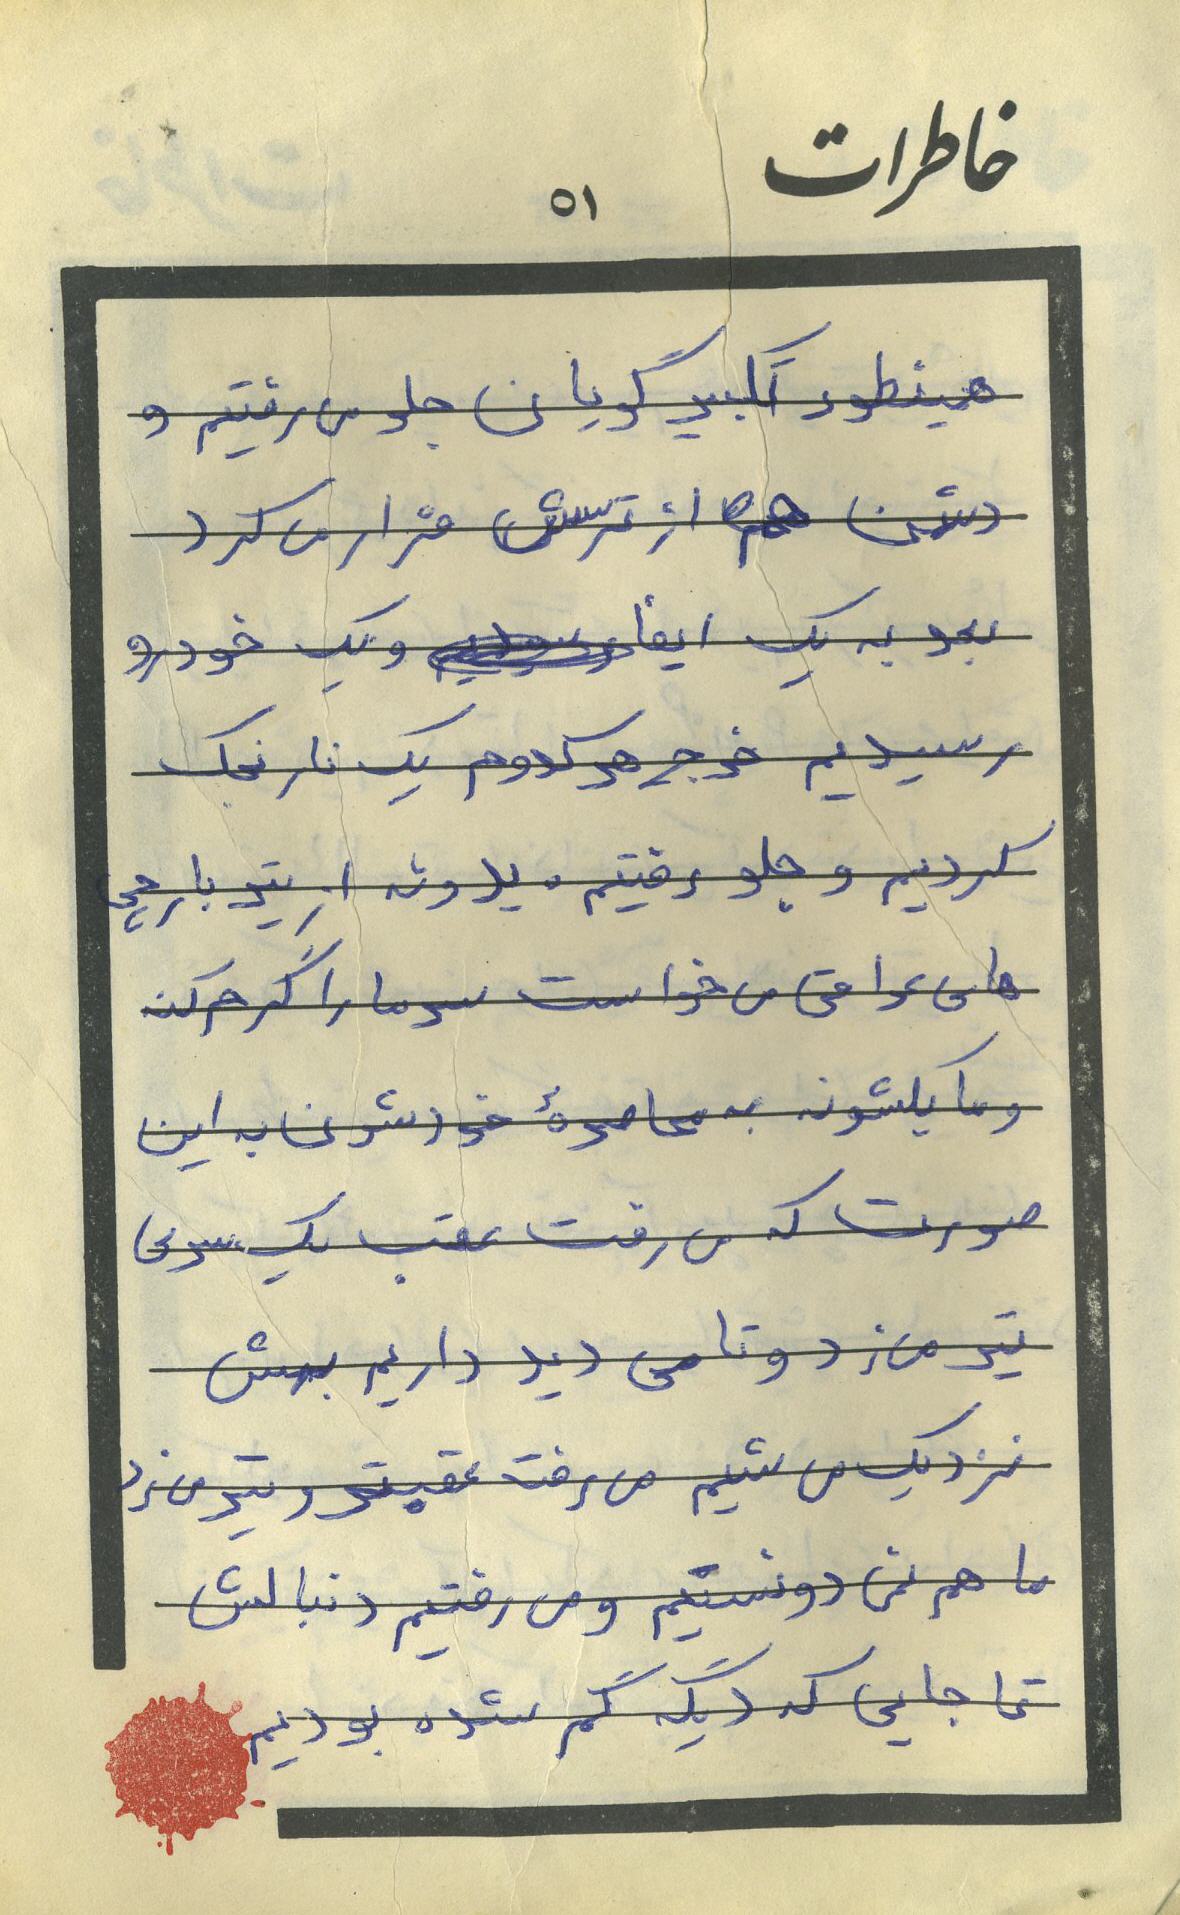 خاطرات
۵۱
همینطور تکبیر گویان جلو می رفتیم و
دشمن هم از ترسش فرار می کرد
بعد به یک ایفا و یک خودرو
رسیدیم خرج هر کدوم یک نارنجک
کردیم و جلو رفتیم یدونه از تیربارچی
های عراقی می خواست سر ما را گرم کنه
و ما بکشونه به محاصرهٔ خودشون به این
صورت که می رفت عقب یک سری
تیر می زد و تا می دید داریم بهش
نزدیک می شیم می رفت عقبتر و تیر می زد
ما هم نمی دونستیم و می رفتیم دنبالش
تا جایی که دیگه گم شده بودیم